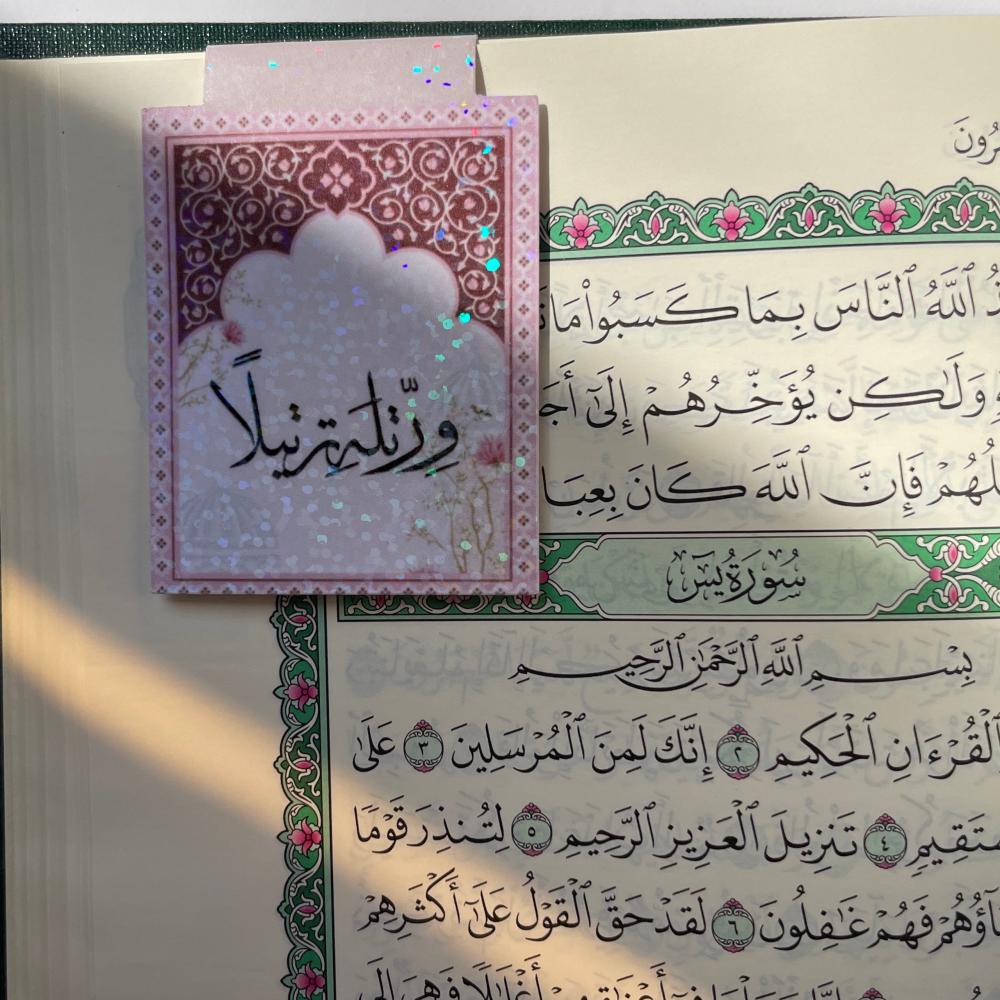 ورتّله ترتيلاً
ـرُونَ
ـذُ ٱللَّهُ ٱلنَّاسَ بِمَا كَسَبُوا۟ مَا
وَلَـٰكِن يُؤَخِّرُهُمْ إِلَىٰٓ أَجَـ
ـلُهُمْ فَإِنَّ ٱللَّهَ كَانَ بِعِبَا
سُورَةُ يسٓ
بِسْمِ ٱللَّهِ ٱلرَّحْمَـٰنِ ٱلرَّحِيمِ
ٱلْقُرْءَانِ ٱلْحَكِيمِ ٢ إِنَّكَ لَمِنَ ٱلْمُرْسَلِينَ ٣ عَلَىٰ
ـسْتَقِيمٍ ٤ تَنزِيلَ ٱلْعَزِيزِ ٱلرَّحِيمِ ٥ لِتُنذِرَ قَوْمًا
ـآؤُهُمْ فَهُمْ غَـٰفِلُونَ ٦ لَقَدْ حَقَّ ٱلْقَوْلُ عَلَىٰٓ أَكْثَرِهِمْ
أَعْنَـٰقِهِمْ أَغْلَـٰلًا فَهِىَ إِلَى